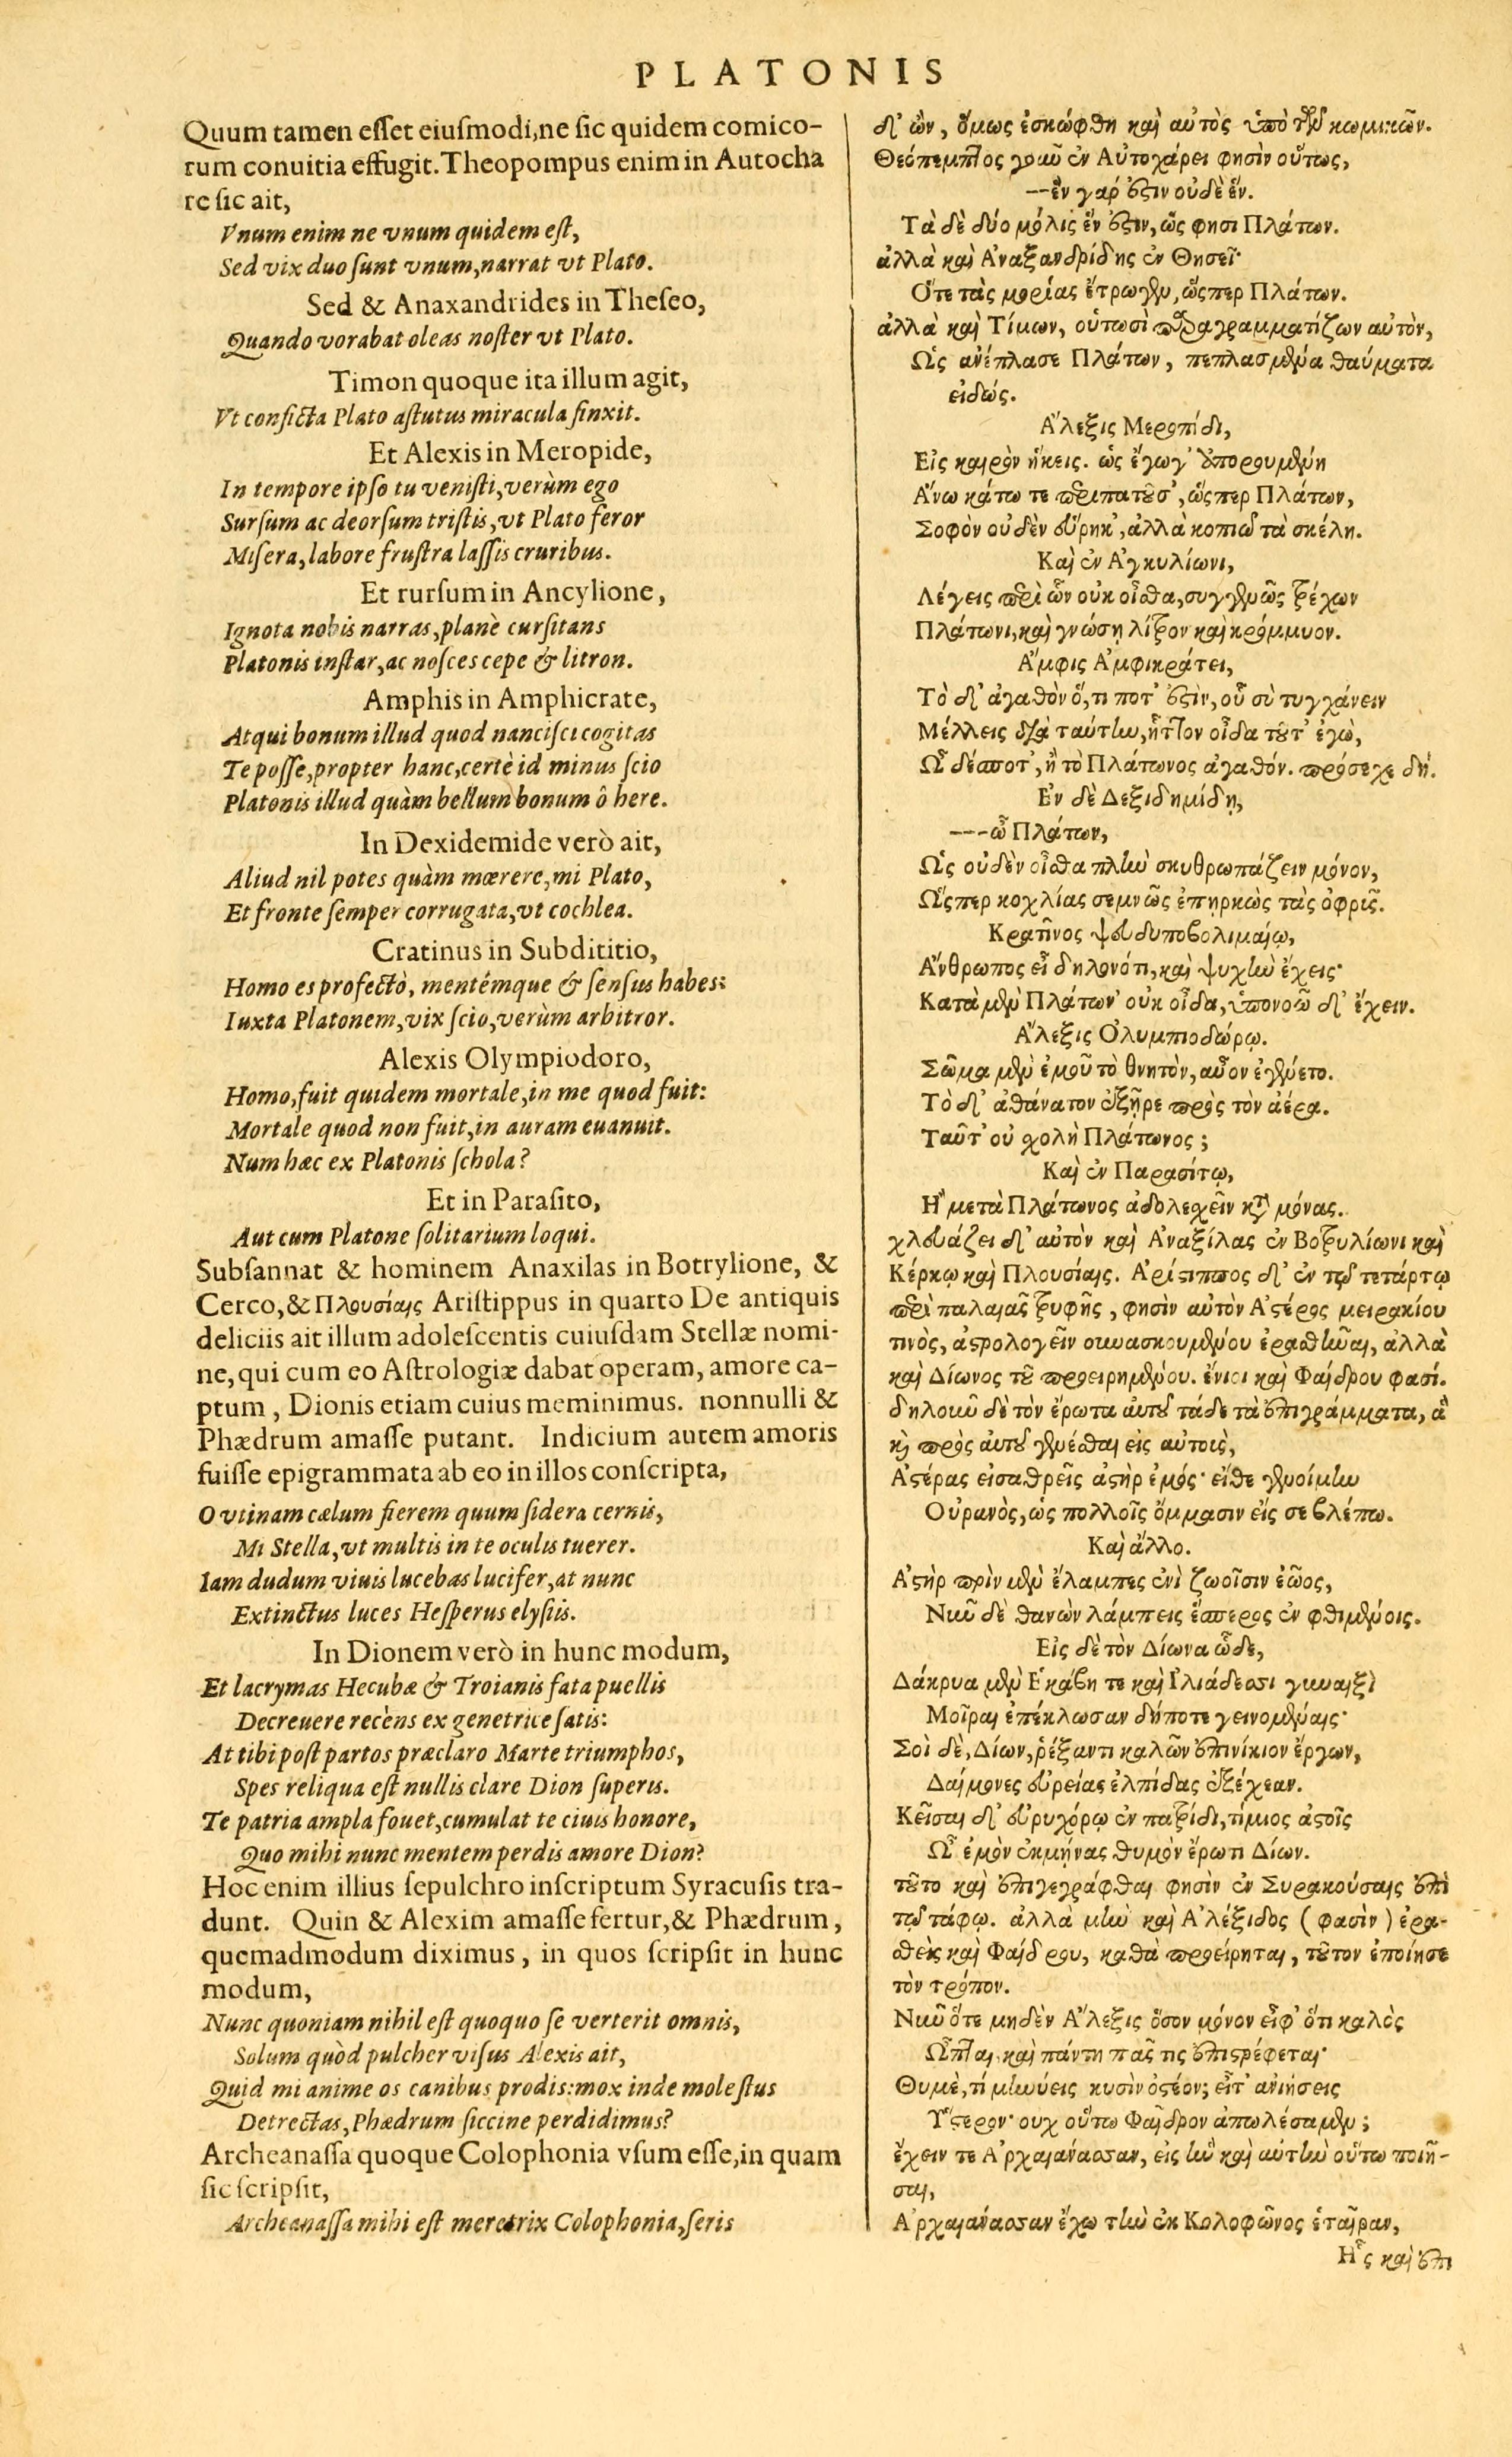 PLATONIS
Quum tamen eſſet eiuſmodi,ne ſic quidem comico-
rum conuitia effugit. Theopompus enim in Autocha
re ſic ait,
Vnum enim ne vnum quidem eſt,
Sed vix duo ſunt vnum,narrat vt Plato.
Sed & Anaxandrides in Theſeo,
Quando vorabat oleas noſter vt Plato.
Timon quoque ita illum agit,
Vt conficta Plato aſtutus miracula finxit.
Et Alexis in Meropide,
In tempore ipſo tu veniſti,verùm ego
Surſum ac deorſum triſtis,vt Plato feror
Miſera,labore fruſtra laſſis cruribus.
Et rurſum in Ancylione,
Ignota nobis narras,planè curſitans
Platonis inſtar,ac noſces cepe & litron.
Amphis in Amphicrate,
Atqui bonum illud quod nanciſci cogitas
Te poſſe,propter hanc,certè id minus ſcio
Platonis illud quàm bellum bonum ô here.
In Dexidemide verò ait,
Aliud nil potes quàm mœrere,mi Plato,
Et fronte ſemper corrugata,vt cochlea.
Cratinus in Subdititio,
Homo es profectò, mentémque & ſenſus habes:
Iuxta Platonem,vix ſcio,verùm arbitror.
Alexis Olympiodoro,
Homo,fuit quidem mortale,in me quod fuit:
Mortale quod non fuit,in auram euanuit.
Num hæc ex Platonis ſchola?
Et in Paraſito,
Aut cum Platone ſolitarium loqui.
Subſannat & hominem Anaxilas in Botrylione, &
Cerco,& Πλουσίαις Ariſtippus in quarto De antiquis
deliciis ait illum adoleſcentis cuiuſdam Stellæ nomi-
ne,qui cum eo Aſtrologiæ dabat operam, amore ca-
ptum , Dionis etiam cuius meminimus. nonnulli &
Phædrum amaſſe putant. Indicium autem amoris
fuiſſe epigrammata ab eo in illos conſcripta,
O vtinam cælum fierem quum ſidera cernis,
Mi Stella,vt multis in te oculis tuerer.
Iam dudum viuis lucebas lucifer,at nunc
Extinctus luces Heſperus elyſiis.
In Dionem verò in hunc modum,
Et lacrymas Hecubæ & Troianis fata puellis
Decreuere recèns ex genetrice ſatis:
At tibi poſt partos præclaro Marte triumphos,
Spes reliqua eſt nullis clare Dion ſuperis.
Te patria ampla fouet,cumulat te ciuis honore,
Quo mihi nunc mentem perdis amore Dion?
Hoc enim illius ſepulchro inſcriptum Syracuſis tra-
dunt. Quin & Alexim amaſſe fertur,& Phædrum,
quemadmodum diximus, in quos ſcripſit in hunc
modum,
Nunc quoniam nihil eſt quoquo ſe verterit omnis,
Solum quòd pulcher viſus Alexis ait,
Quid mi anime os canibus prodis:mox inde moleſtus
Detrectas,Phædrum ſiccine perdidimus?
Archeanaſſa quoque Colophonia vſum eſſe,in quam
ſic ſcripſit,
Archeanaſſa mihi eſt meretrix Colophonia,ſeris
δ᾽ ὢν, ὅμως ἐσκώφθη καὶ αὐτὸς ὑπὸ τῶν κωμικῶν.
Θεόπεμπτος γοῦν ἐν Αὐτοχάρει φησὶν οὕτως,
---ἓν γάρ ἐστιν οὐδὲ ἕν.
Τὰ δὲ δύο μόλις ἕν ἐστιν,ὥς φησι Πλάτων.
ἀλλὰ καὶ Ἀναξανδρίδης ἐν Θησεῖ·
Ὅτε τὰς μορίας ἔτρωγεν,ὥσπερ Πλάτων.
ἀλλὰ καὶ Τίμων, οὑτωσὶ παραγραμματίζων αὐτόν,
Ὡς ἀνέπλασε Πλάτων, πεπλασμένα θαύματα
εἰδώς.
Ἄλεξις Μεροπίδι,
Εἰς καιρὸν ἥκεις. ὡς ἔγωγ᾽ ἀπορουμένη
Ἄνω κάτω τε περιπατοῦσ᾽,ὥσπερ Πλάτων,
Σοφὸν οὐδὲν εὕρηκ᾽,ἀλλὰ κοπιῶ τὰ σκέλη.
Καὶ ἐν Ἀγκυλίωνι,
Λέγεις περὶ ὧν οὐκ οἶσθα,συγγενῶς τρέχων
Πλάτωνι,καὶ γνώσῃ λίτρον καὶ κρόμμυον.
Ἄμφις Ἀμφικράτει,
Τὸ δ᾽ ἀγαθὸν ὅ,τι ποτ᾽ ἐστὶν,οὗ σὺ τυγχάνειν
Μέλλεις διὰ ταύτην,ἧττον οἶδα τοῦτ᾽ ἐγὼ,
Ὦ δέσποτ᾽,ἢ τὸ Πλάτωνος ἀγαθόν. πρόσεχε δή.
Ἐν δὲ Δεξιδημίδῃ,
---ὦ Πλάτων,
Ὡς οὐδὲν οἶσθα πλὴν σκυθρωπάζειν μόνον,
Ὥσπερ κοχλίας σεμνῶς ἐπηρκὼς τὰς ὀφρῦς.
Κρατῖνος ψευδυποβολιμαίῳ,
Ἄνθρωπος εἶ δηλονότι,καὶ ψυχὴν ἔχεις·
Κατὰ μὲν Πλάτων᾽ οὐκ οἶδα,ὑπονοῶ δ᾽ ἔχειν.
Ἄλεξις Ὀλυμπιοδώρῳ.
Σῶμα μὲν ἐμοῦ τὸ θνητὸν,αὖον ἐγένετο.
Τὸ δ᾽ ἀθάνατον ἐξῆρε πρὸς τὸν ἀέρα.
Ταῦτ᾽ οὐ χολὴ Πλάτωνος ;
Καὶ ἐν Παρασίτῳ,
Ἢ μετὰ Πλάτωνος ἀδολεχεῖν κατὰ μόνας.
χλευάζει δ᾽ αὐτὸν καὶ Ἀναξίλας ἐν Βοτρυλίωνι καὶ
Κέρκῳ καὶ Πλουσίαις. Ἀρίστιππος δ᾽ ἐν τῷ τετάρτῳ
περὶ παλαιᾶς τρυφῆς , φησὶν αὐτὸν Ἀστέρος μειρακίου
τινὸς, ἀστρολογεῖν συνασκουμένου ἐρασθῆναι, ἀλλὰ
καὶ Δίωνος τοῦ προειρημένου. ἔνιοι καὶ Φαίδρου φασί.
δηλοῦν δὲ τὸν ἔρωτα αὐτοῦ τάδε τὰ ἐπιγράμματα, ἃ
καὶ πρὸς αὐτοῦ γενέσθαι εἰς αὐτοὺς,
Ἀστέρας εἰσαθρεῖς ἀστὴρ ἐμός· εἴθε γενοίμην
Οὐρανὸς,ὡς πολλοῖς ὄμμασιν εἰς σε βλέπω.
Καὶ ἄλλο.
Ἀστὴρ πρὶν μὲν ἔλαμπες ἐνὶ ζωοῖσιν ἑῷος,
Νῦν δὲ θανὼν λάμπεις ἕσπερος ἐν φθιμένοις.
Εἰς δὲ τὸν Δίωνα ὧδε,
Δάκρυα μὲν Ἑκάβῃ τε καὶ Ἰλιάδεσσι γυναιξὶ
Μοῖραι ἐπέκλωσαν δήποτε γεινομέναις·
Σοὶ δὲ,Δίων,ῥέξαντι καλῶν ἐπινίκιον ἔργων,
Δαίμονες εὐρείας ἐλπίδας ἐξέχεαν.
Κεῖσαι δ᾽ εὐρυχόρῳ ἐν πατρίδι,τίμιος ἀστοῖς
Ὦ ἐμὸν ἐκμήνας θυμὸν ἔρωτι Δίων.
τοῦτο καὶ ἐπιγεγράφθαι φησὶν ἐν Συρακούσαις ἐπὶ
τῷ τάφῳ. ἀλλὰ μὴν καὶ Ἀλέξιδος ( φασὶν ) ἐρα-
σθεὶς καὶ Φαίδρου, καθὰ προείρηται, τοῦτον ἐποίησε
τὸν τρόπον.
Νῦν ὅτε μηδὲν Ἄλεξις ὅσον μόνον εἶφ᾽ ὅτι καλὸς
Ὦπται καὶ πάντῃ πᾶς τις ἐπιστρέφεται·
Θυμὲ,τί μηνύεις κυσὶν ὀστέον; εἶτ᾽ ἀνιήσεις
Ὕστερον· ουχ οὕτω Φαῖδρον ἀπωλέσαμεν ;
ἔχειν τε Ἀρχαιάνασσαν, εἰς ἣν καὶ αὐτὴν οὕτω ποιῆ-
σαι,
Ἀρχαιάνασσαν ἔχω τὴν ἐκ Κολοφῶνος ἑταῖραν,
Ἧς καὶ ἐπι